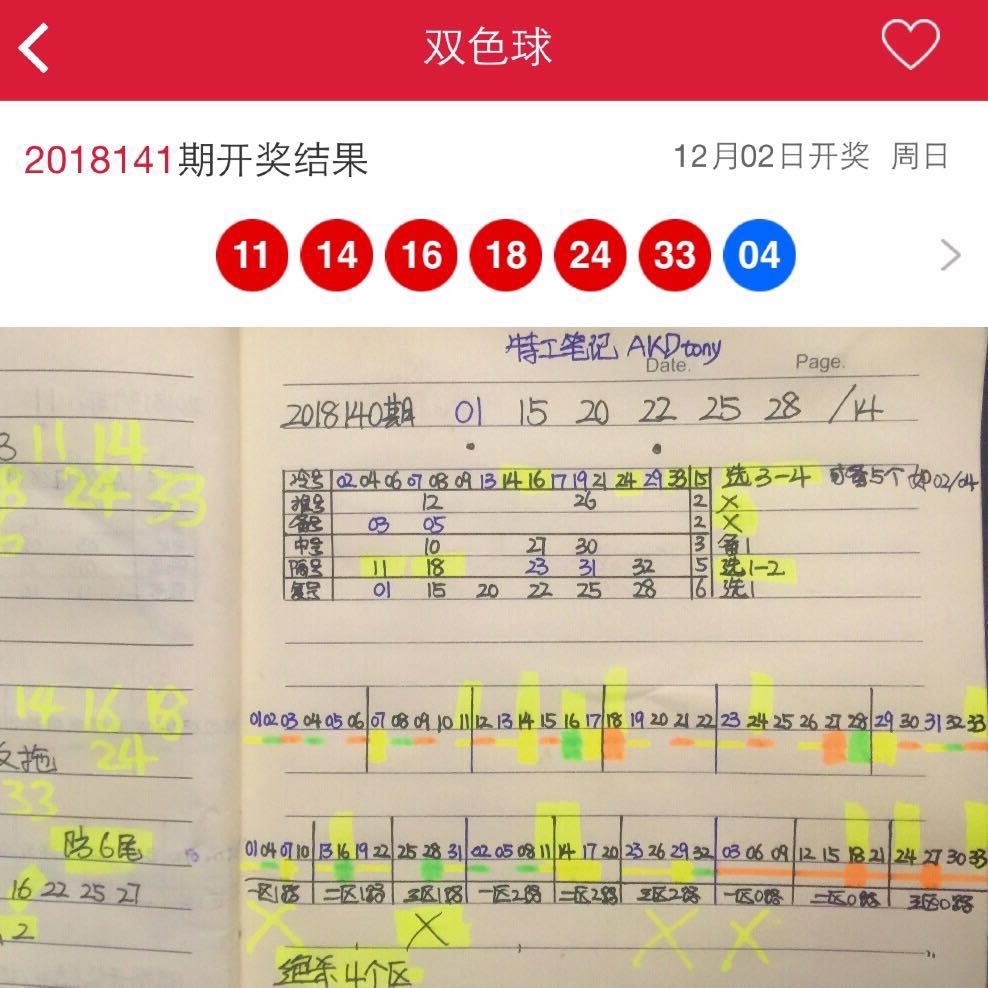 双色球
2018141期开奖结果
12月02日开奖 周日
11 14 16 18 24 33 04
特工笔记 AKDtony
Date. Page.
2018140期 01 15 20 22 25 28 /14
3 11 14
8 24 33
冷号 02 04 06 07 08 09 13 14 16 17 19 21 24 29 33 15 选3-4 可备5个 如02/04
12 26 2 X
03 05 2 X
中号 10 27 30 3 备1
隔号 11 18 23 31 32 5 选1-2
复号 01 15 20 22 25 28 6 选1
14 16 18
01 02 03 04 05 06 07 08 09 10 11 12 13 14 15 16 17 18 19 20 21 22 23 24 25 26 27 28 29 30 31 32 33
拖 24
33
防6尾
01 04 07 10 13 16 19 22 25 28 31 02 05 08 11 14 17 20 23 26 29 32 03 06 09 12 15 18 21 24 27 30 33
16 22 25 27
一区1路 二区1路 三区1路 一区2路 二区2路 三区2路 一区0路 二区0路 三区0路
2
X X X X
绝杀4个区